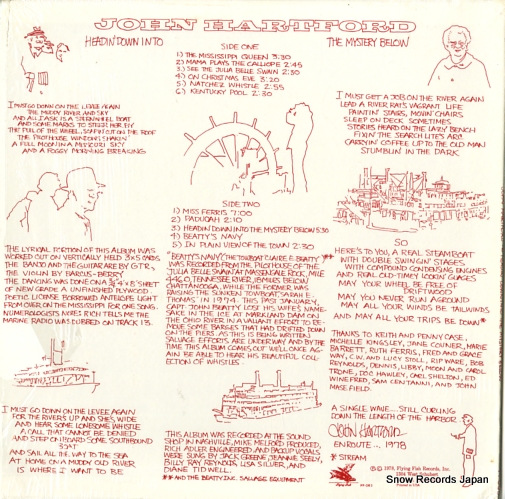 JOHN HARTFORD
HEADIN DOWN INTO
THE MYSTERY BELOW
SIDE ONE
1) THE MISSISSIPPI QUEEN 3:30
2) MAMA PLAYS THE CALLIOPE 2:45
3) SEE THE JULIA BELLE SWAIN 2:30
4) ON CHRISTMAS EVE 3:20
5) NATCHEZ WHISTLE 2:55
6) KENTUCKY POOL 2:30
I MUST GO DOWN ON THE LEVEE AGAIN
THE MUDDY RIVER AND SKY
AND ALL I ASK IS A STERNWHEEL BOAT
AND SOME MARKS TO STEER HER BY
THE PULL OF THE WHEEL, SOFT ON THE ROOF
THE PILOTHOUSE WINDOWS SHAKIN
A FULL MOON IN A MISSOURI SKY
AND A FOGGY MORNING BREAKING
I MUST GET A JOB ON THE RIVER AGAIN
LEAD A RIVER RAT'S VAGRANT LIFE
PAINTIN' STAGES, MOVIN' CHAIRS
SLEEP ON DECK SOMETIMES
STORIES HEARD ON THE LAZY BENCH
FIXIN' THE SEARCH LITE'S ARC
CARRYIN' COFFEE UP TO THE OLD MAN
STUMBLIN IN THE DARK
SIDE TWO
1) MISS FERRIS 7:00
2) PADUCAH 2:10
3) HEADIN DOWN INTO THE MYSTERY BELOW 5:30
4) BEATTY'S NAVY
5) IN PLAIN VIEW OF THE TOWN 2:30
THE LYRICAL PORTION OF THIS ALBUM WAS
WORKED OUT ON VERTICALLY HELD 3x5 CARDS
THE BANJO AND THE GUITAR ARE BY GTR,
THE VIOLIN BY BARCUS-BERRY
THE DANCING WAS DONE ON A 3/4" 4'x8' SHEET
OF NEW GRADE A UNFINISHED PLYWOOD
POETIC LICENSE BORROWED ANTELOPE LIGHT
FROM OVER ON THE MISSISSIPPI FOR OHIO SONG.
NUMEROLOGISTS NOTE: RICH TELLS ME THE
MARINE RADIO WAS DUBBED ON TRACK 13.
"BEATTY'S NAVY" (THE TOWBOAT CLAIRE E. BEATTY)**
WAS RECORDED FROM THE PILOTHOUSE OF THE
JULIA BELLE SWAIN AT MASSENGALE ROCK, MILE
446.0, TENNESSEE RIVER, 18 MILES BELOW
CHATTANOOGA, WHILE THE FORMER WAS
RAISING THE SUNKEN TOWBOAT "SARAH E.
THOMAS" IN 1974. THIS PAST JANUARY,
CAPT. JOHN BEATTY LOST HIS WIFE'S NAMESAKE
IN THE ICE AT MARKLAND DAM ON
THE OHIO RIVER IN A VALIANT EFFORT TO REMOVE
SOME BARGES THAT HAD DRIFTED DOWN
ON THE PIERS. AS THIS IS BEING WRITTEN,
SALVAGE EFFORTS ARE UNDERWAY AND BY THE
TIME THIS ALBUM COMES OUT WE'LL ONCE AGAIN
BE ABLE TO HEAR HIS BEAUTIFUL COLLECTION
OF WHISTLES
SO
HERE'S TO YOU, A REAL STEAMBOAT
WITH DOUBLE SWINGIN' STAGES,
WITH COMPOUND CONDENSING ENGINES
AND REAL OLD-TIMEY LOOKIN' GUAGES
MAY YOUR WHEEL BE FREE OF
DRIFTWOOD
MAY YOU NEVER RUN AGROUND
MAY ALL YOUR WINDS BE TAILWINDS
AND MAY ALL YOUR TRIPS BE DOWN*
THANKS TO KEITH AND PENNY CASE,
MICHELLE KINGSLEY, JANE CONNER, MARIE
BARRETT, RUTH FERRIS, FRED AND GRACE
WAY, C.W. AND LUCY STOLL, RIP WARE, BOB
REYNOLDS, DENNIS, LIBBY, MOON AND CAROL
TRONE, DOC HAWLEY, CARL SHELTON, ED
WINEFRED, SAM CENTANNI, AND JOHN
MASEFIELD.
I MUST GO DOWN ON THE LEVEE AGAIN
FOR THE RIVER'S UP AND SHE'S WIDE
AND HEAR SOME LONESOME WHISTLE
A CALL THAT CANNOT BE DENIED
AND STEP ON BOARD SOME SOUTHBOUND
BOAT
AND SAIL ALL THE WAY TO THE SEA
AT HOME ON A MUDDY OLD RIVER
IS WHERE I WANT TO BE
THIS ALBUM WAS RECORDED AT THE SOUND
SHOP IN NASHVILLE, MIKE MELFORD PRODUCED,
RICH ADLER ENGINEERED AND BACKUP VOCALS
WERE SUNG BY JACK GREENE, JEANNIE SEELY,
BILLY RAY REYNOLDS, LISA SILVER, AND
DIANE TIDWELL.
**AND THE BEATTY INC. SALVAGE EQUIPMENT
A SINGLE WAVE... STILL CURLING
DOWN THE LENGTH OF THE HARBOR
John Hartford
ENROUTE... 1978
* STREAM
© 1978, Flying Fish Records, Inc.
1304 West Schubert
Snow Records Japan